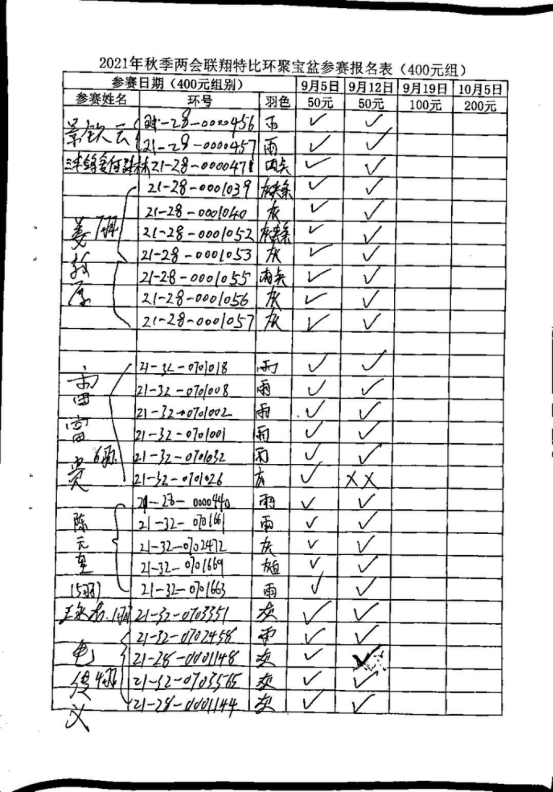 2021年秋季两会联翔特比环聚宝盆参赛报名表（400元组）
参赛日期（400元组别） 9月5日 9月12日 9月19日 10月5日
参赛姓名 环号 羽色 50元 50元 100元 200元
-28-0000456 雨 ✓ ✓
21-29-0000457 雨 ✓ ✓
21-28-0000471 ✓ ✓
21-28-0001039 ✓ ✓
21-28-0001040 灰 ✓ ✓
21-28-0001052 ✓ ✓
21-28-0001053 灰 ✓ ✓
21-28-0001055 ✓ ✓
21-28-0001056 灰 ✓ ✓
21-28-0001057 灰 ✓ ✓
21-32-0701018 雨 ✓ ✓
21-32-0701008 雨 ✓ ✓
21-32-0701002 雨 ✓ ✓
21-32-0701001 雨 ✓ ✓
21-32-0701032 雨 ✓ ✓
21-32-0701026 灰 ✓ ✗✗
21-28-0000440 雨 ✓ ✓
陈元 21-32-0701661 雨 ✓ ✓
21-32-0702472 灰 ✓ ✓
21-32-0701669 ✓ ✓
(5羽) 21-32-0701663 雨 ✓ ✓
21-32-0703351 灰 ✓ ✓
21-32-0702458 雨 ✓ ✓
21-28-0001148 灰 ✓ ✓
21-32-0703565 灰 ✓ ✓
21-28-0001144 灰 ✓ ✓